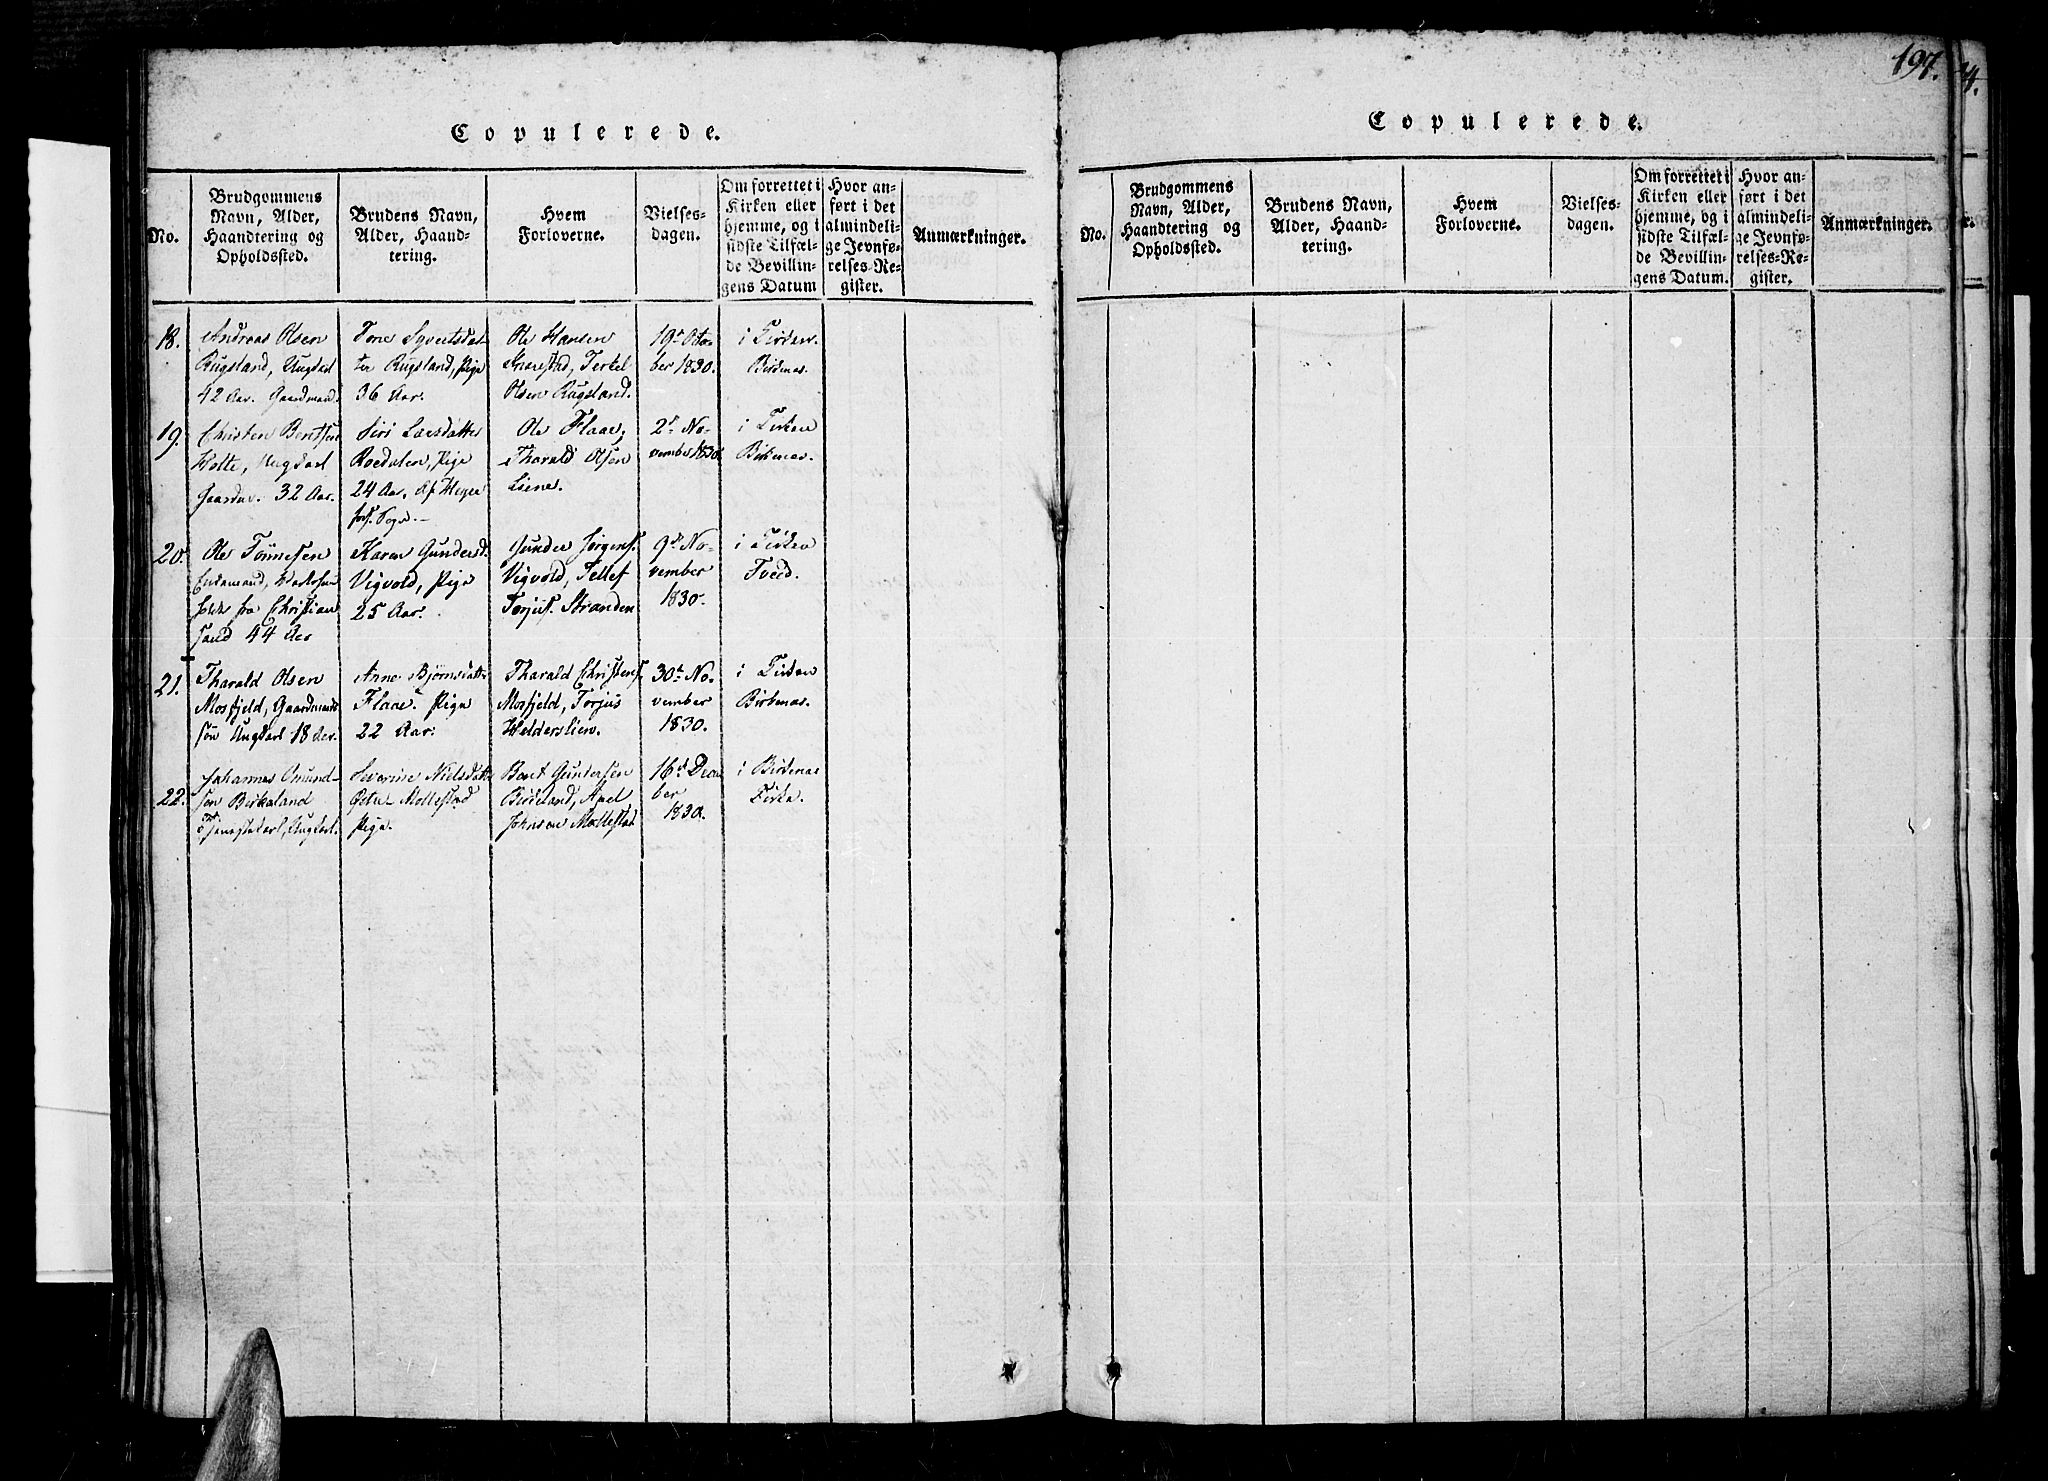 197.
Copulerede.
No.
Brudgommens
Navn, Alder,
Haandtering og
Opholdssted.
Brudens Navn,
Alder, Haand-
tering.
Hvem
Forloverne.
Vielses-
dagen.
Om forrettet i
Kirken eller
hjemme, og i
sidste Tilfæl-
de Bevillin-
gens Datum
Hvor an-
ført i det
almindeli-
ge Jevnfø-
relses-Re-
gister.
Anmærkninger.
18.
Andreas Olsen
Rugsland, Ungkarl
42 Aar. Gaardmand.
Tone Syvertsdat
ter Rugsland, Pige
36 Aar.
Ole Hansen
Terkel
Olsen Rugsland.
19de Octo-
ber 1830.
i Kirken
Birkenæs.
19.
Christen Bentsen
Ungkarl
32 Aar.
Siri Larsdatter
Roedalen, Pige
24 Aar, af
Sogn.
Ole Flaae,
Tharald Olsen
Liene.
2de No-
vember 1830.
i Kirken
Birkenæs.
20.
Ole Tønnesen
Enkemand,
fra Christian
sand 44 Aar
Karen Gundersd.
Vigvold, Pige
25 Aar.
Gunder Jørgens.
Vigvold, Tellef
Torjus. Stranden
9de No-
vember
1830.
i Kirken
Tveed.
21.
Tharald Olsen
Mosfjeld, Gaardmands
søn Ungkarl 18 Aar.
Anne Bjørnsdatter
Flaae. Pige
22 Aar.
Tharald Christens.
Mosfjeld, Torjus
Helderslien.
30te No-
vember
1830.
i Kirken
Birkenæs.
22.
Johannes Omund-
sen Birkeland
Tjenestekarl, Ungkarl.
Severine Nielsdatter
Mollestad
Pige.
Bent Guntersen
Birkeland, Axel
Johnsen Mollestad
16de Decem
ber
1830.
i Birkenæs
Kirke.
Copulerede.
No.
Brudgommens
Navn, Alder,
Haandtering og
Opholdssted.
Brudens Navn,
Alder, Haand-
tering.
Hvem
Forloverne.
Vielses-
dagen.
Om forrettet i
Kirken eller
hjemme, og i
sidste Tilfæl-
de Bevillin-
gens Datum.
Hvor an-
ført i det
almindeli-
ge Jevnfø-
relses-Re-
gister.
Anmærkninger.